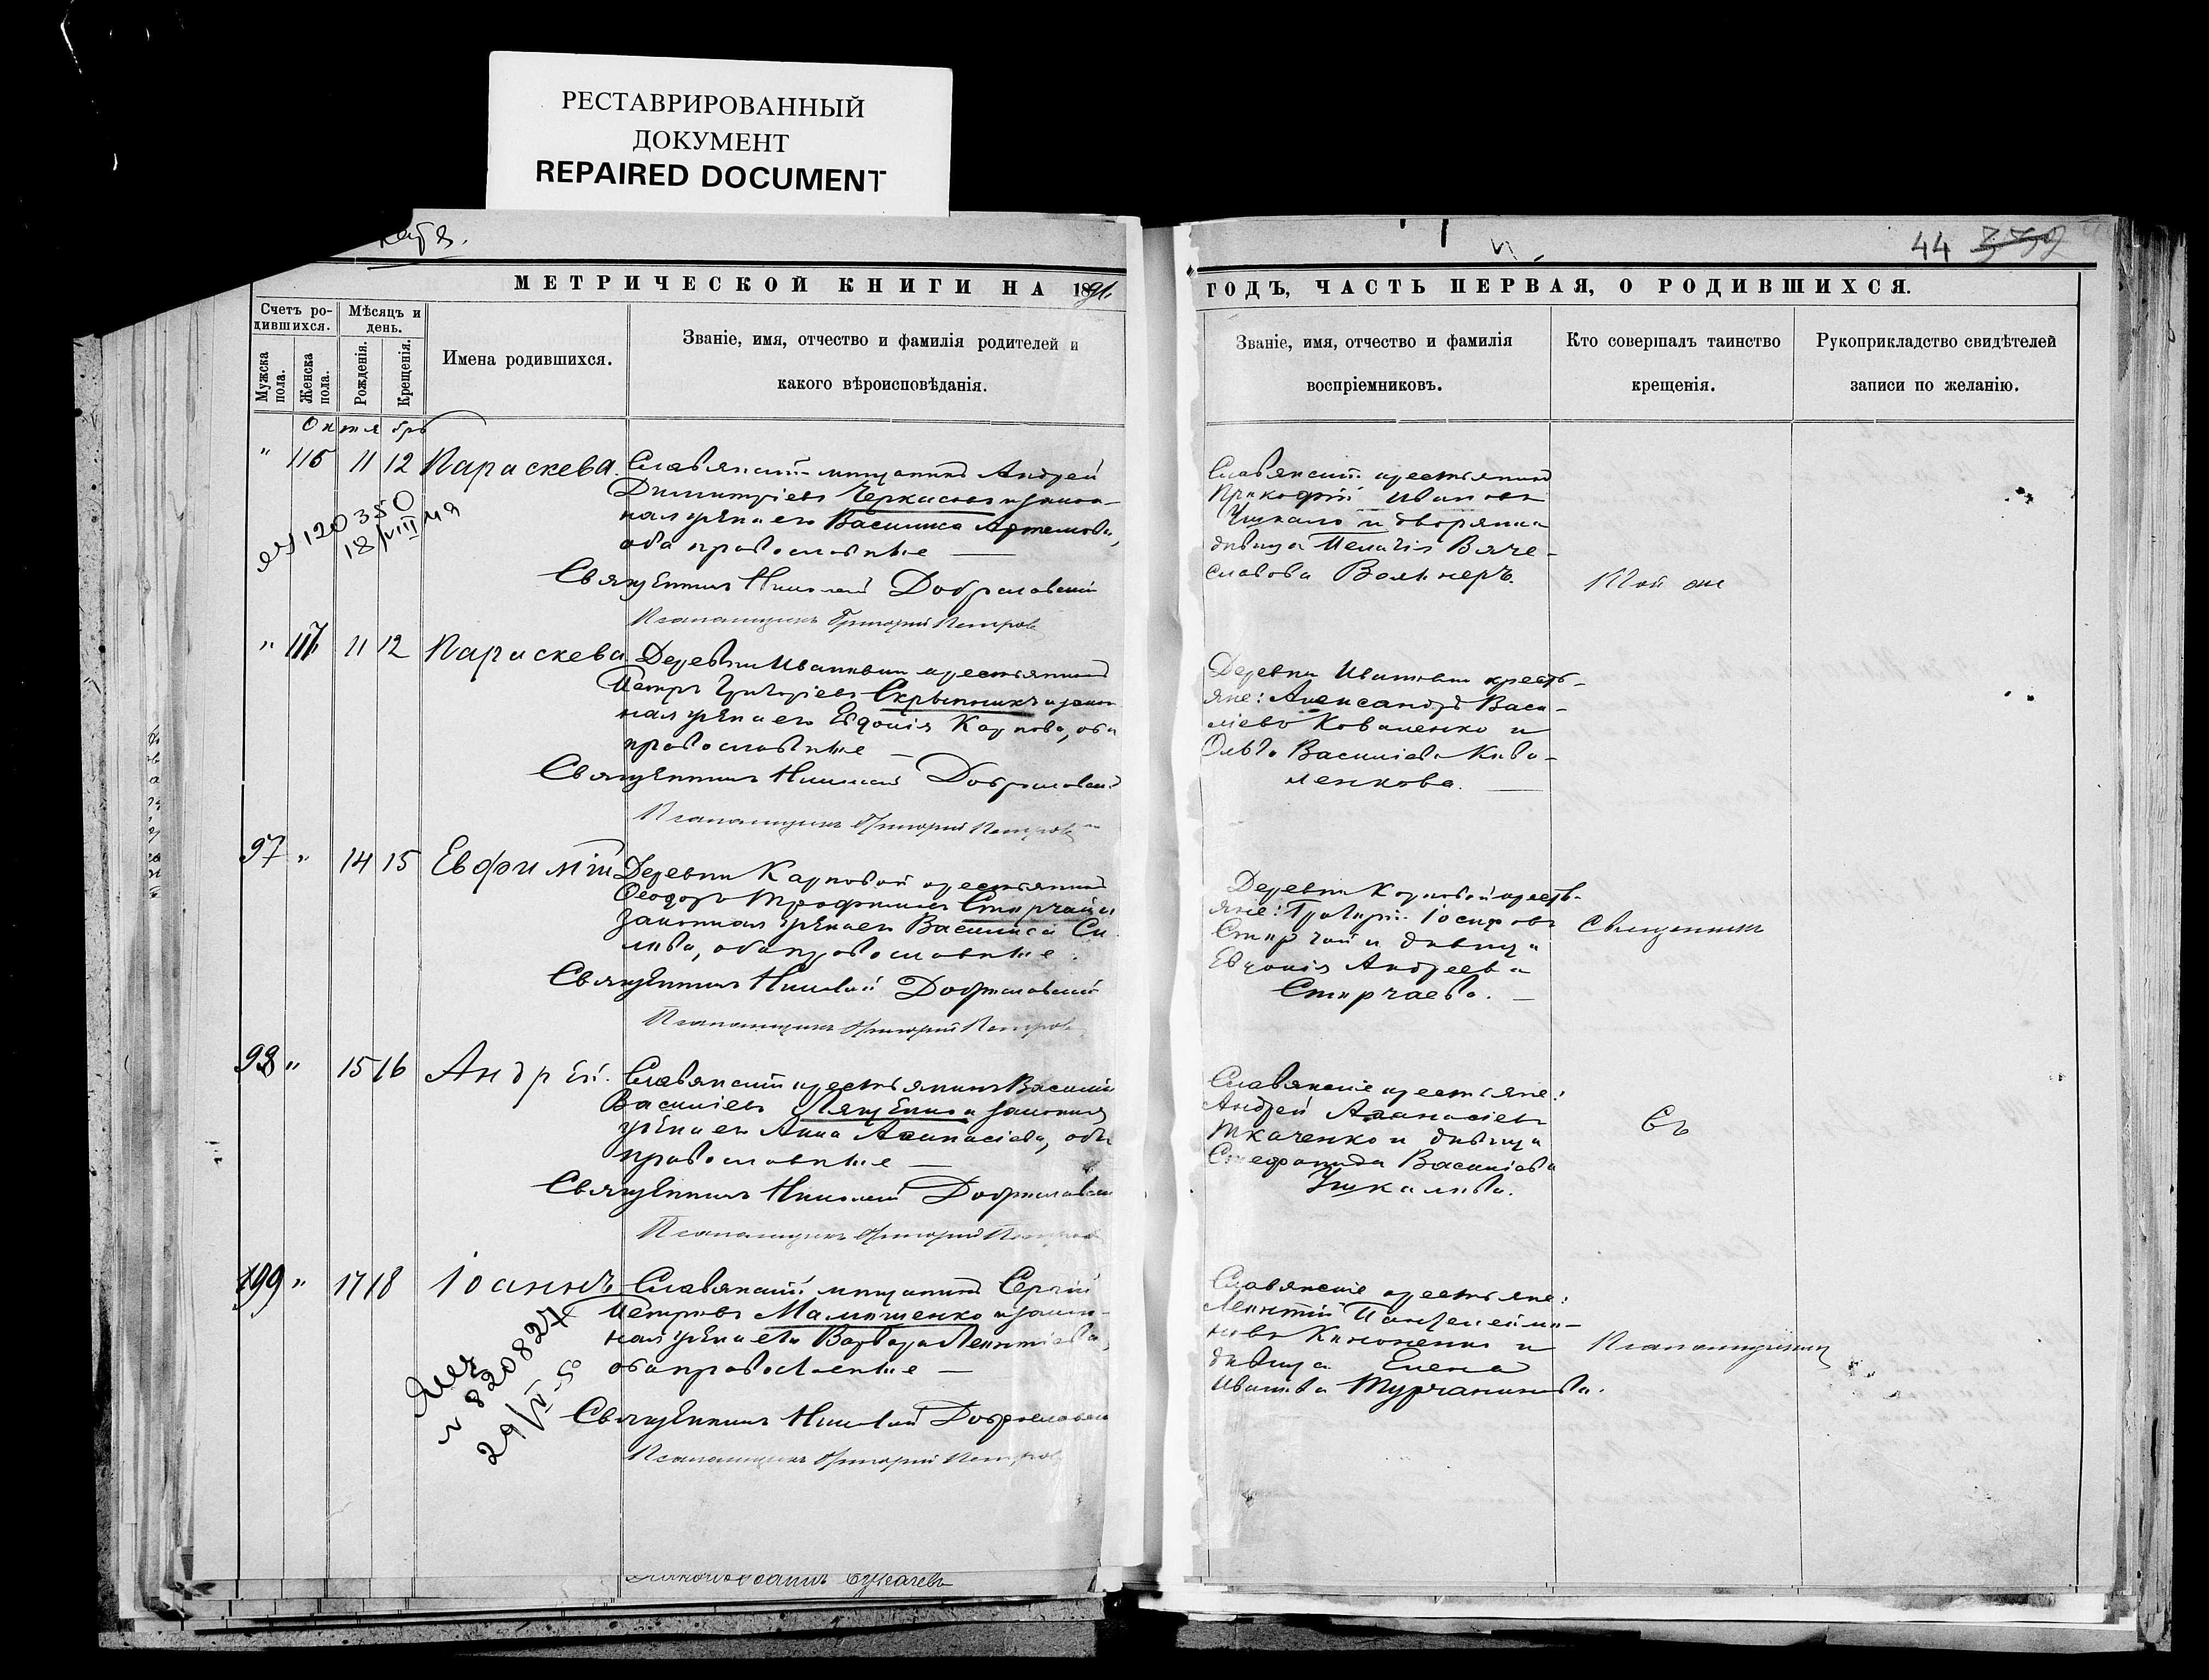 РЕСТАВРИРОВАННЫЙ
ДОКУМЕНТ
REPAIRED DOCUMENT
44
МЕТРИЧЕСКОЙ КНИГИ НА 1891
ГОДЪ, ЧАСТЬ ПЕРВАЯ, О РОДИВШИХСЯ.
Счетъ ро-
дившихся.
Мужска
пола.
Женска
пола.
Мѣсяцъ и
день.
Рожденія.
Крещенія.
Имена родившихся.
Званіе, имя, отчество и фамилія родителей и
какого вѣроисповѣданія.
Званіе, имя, отчество и фамилія
воспріемниковъ.
Кто совершалъ таинство
крещенія.
Рукоприкладство свидѣтелей
записи по желанію.
Октябрь
" 116 11 12 Параскева Славянскій мѣщанинъ Андрей
Димитріевъ Черкасовъ и закон-
ная жена его Василиса Артемова,
оба православные
Священникъ Николай Доброславскій
Псаломщикъ Григорій Петровъ
Славянскій крестьянинъ
Прокофій Ивановъ
Чикало и дворянка
дѣвица Пелагія Вяче-
славова
Той же
яч 120350
18/VIII 49
" 117 11 12 Параскева Деревни Ивановки крестьянинъ
Петръ Григоріевъ Скрынникъ и закон-
ная жена его Евдокія Карпова, оба
православные
Священникъ Николай Доброславскій
Псаломщикъ Григорій Петровъ
Деревни Ивановки кресть-
яне: Александръ Васи-
ліевъ Коваленко и
Ольга Василіева Кова-
ленкова.
97 " 14 15 Евфимій Деревни Карповой крестьянинъ
Ѳеодоръ Трофимовъ Стирчай и
законная жена его Василиса Си-
лова, оба православные.
Священникъ Николай Доброславскій
Псаломщикъ Григорій Петровъ
Деревни Карповой кресть-
яне: Григорій Іосифовъ
Стирчай и дѣвица
Евдокія Андреева
Стирчаева.
Священникъ
98 " 15 16 Андрей. Славянскій крестьянинъ Василій
Василіевъ Лященко и законная
жена его Анна Аѳанасіева, оба
православные
Священникъ Николай Доброславскій
Псаломщикъ Григорій Петровъ
Славянскіе крестьяне:
Андрей Аѳанасіевъ
Ткаченко и дѣвица
Стефанида Василіева
Чикалова.
Съ
99 " 17 18 Іоаннъ Славянскій мѣщанинъ Сергій
Петровъ и закон-
ная жена его Варвара Леонтіева,
оба православные
Священникъ Николай Доброславскій
Псаломщикъ Григорій Петровъ
Славянскіе крестьяне:
Леонтій Пантелеймо-
новъ Кононенко и
дѣвица Елена
Иванова Турчанинова.
Псаломщикомъ
820827
29/VI-50